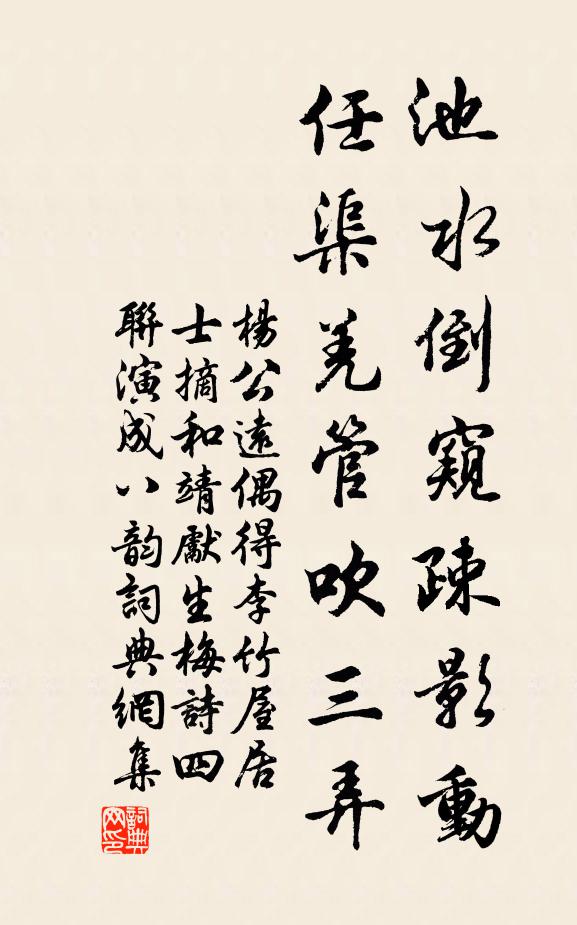 池水倒窺疎影動
任渠羌管吹三弄
楊公遠偶得李竹屋居
士摘和靖獻生梅詩四
聯演成八韵詞典網集
詞典
网印